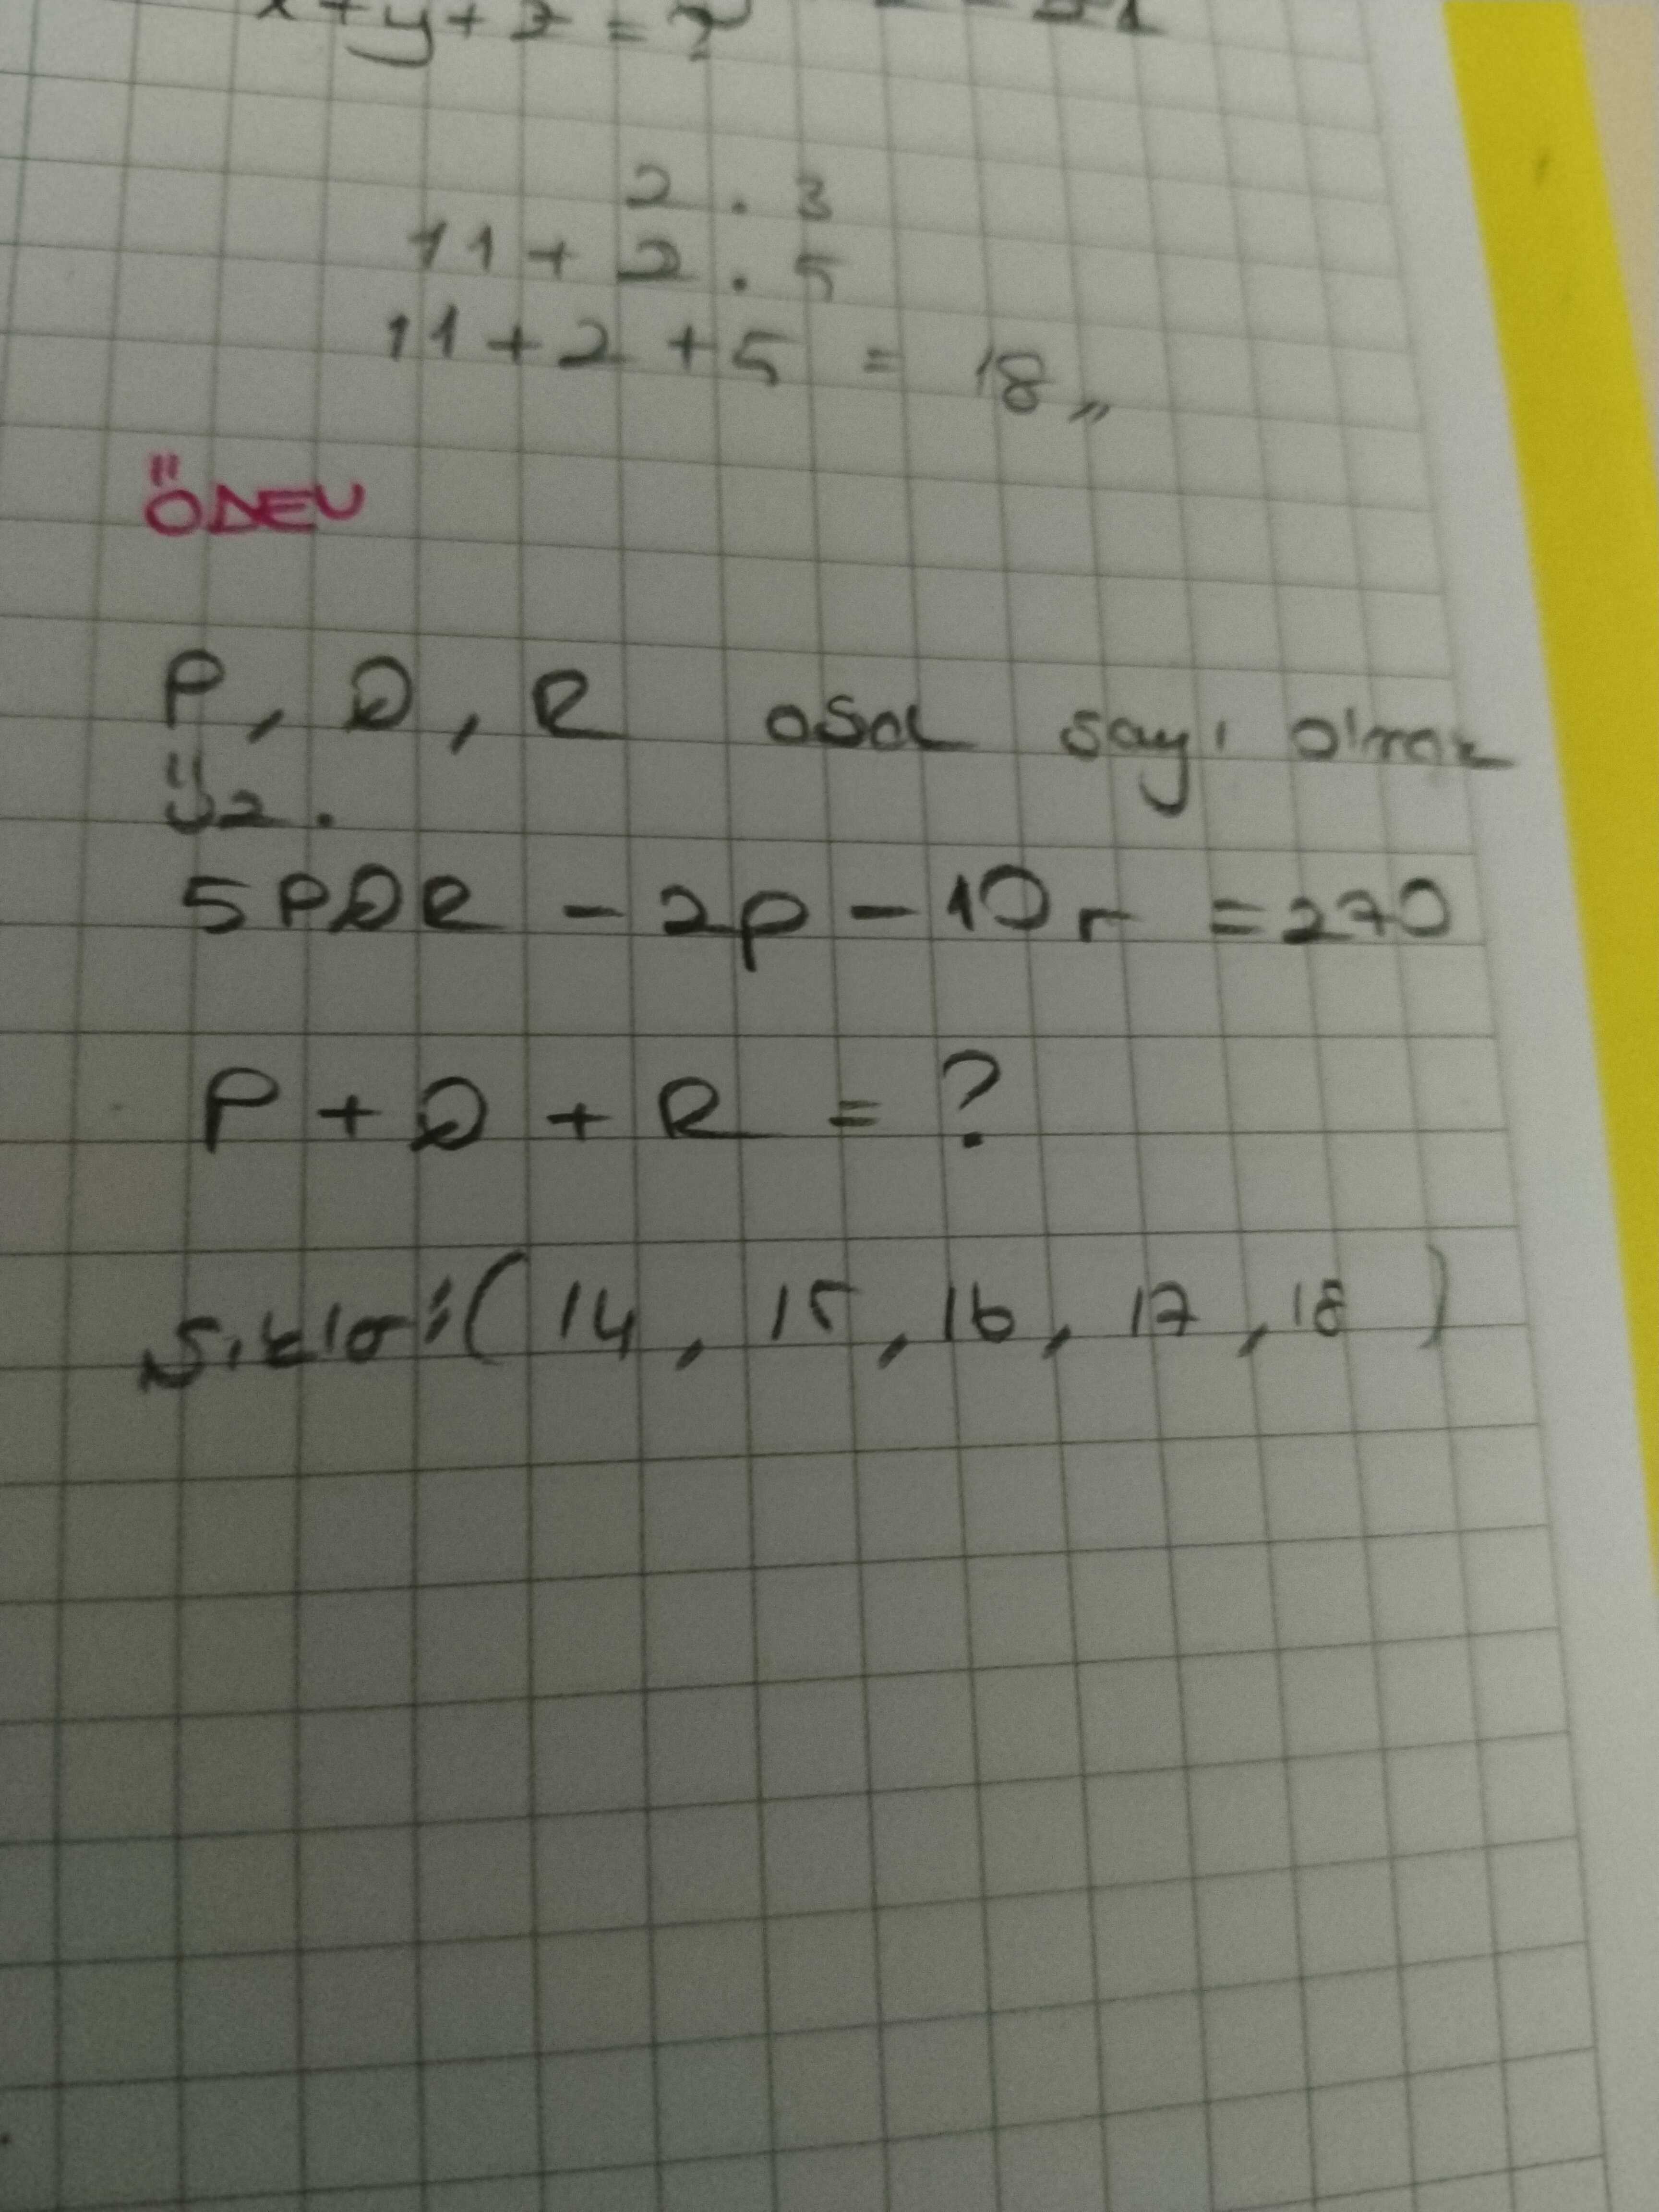 x + y + z = ?
2 . 3
11 + 2 . 5
11 + 2 + 5 = 18,,
ÖDEV
P, Q, R asal sayı olmak
üz.
5PQR - 2p - 10r = 270
P + Q + R = ?
Şıklar: (14, 15, 16, 17, 18)